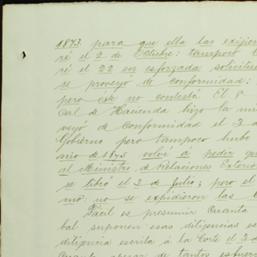 1873 para que ella las exijiera
ré el 2 de Octubre: tampoco
ré el 22 un esforzada solicitud
se proveyo de conformidad:
pero este no contestó El 8
Carl de Hacienda hizo la mis
veyó de conformidad el 3 d
Gobierno pero tampoco hubo
nio de 1875 volví a pedir que
al Ministro de Relaciones Exterio
se libró el 2 de Julio; pero el
mó no se expidieron las
Fácil es presumir cuanta
bal suponen esas diligencias se
diligencia escrita á la Corte el 3 d
que a pesar de tantos esfuerz